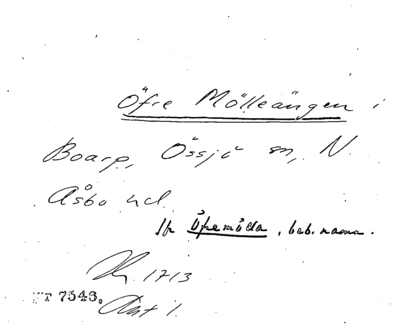 Öfre Mölleängen i
Boarp, Össjö sn, N.
Åsbo hd.
Jfr Öfremölla, beb.namn.
1713
FT 7343. Akt 1.